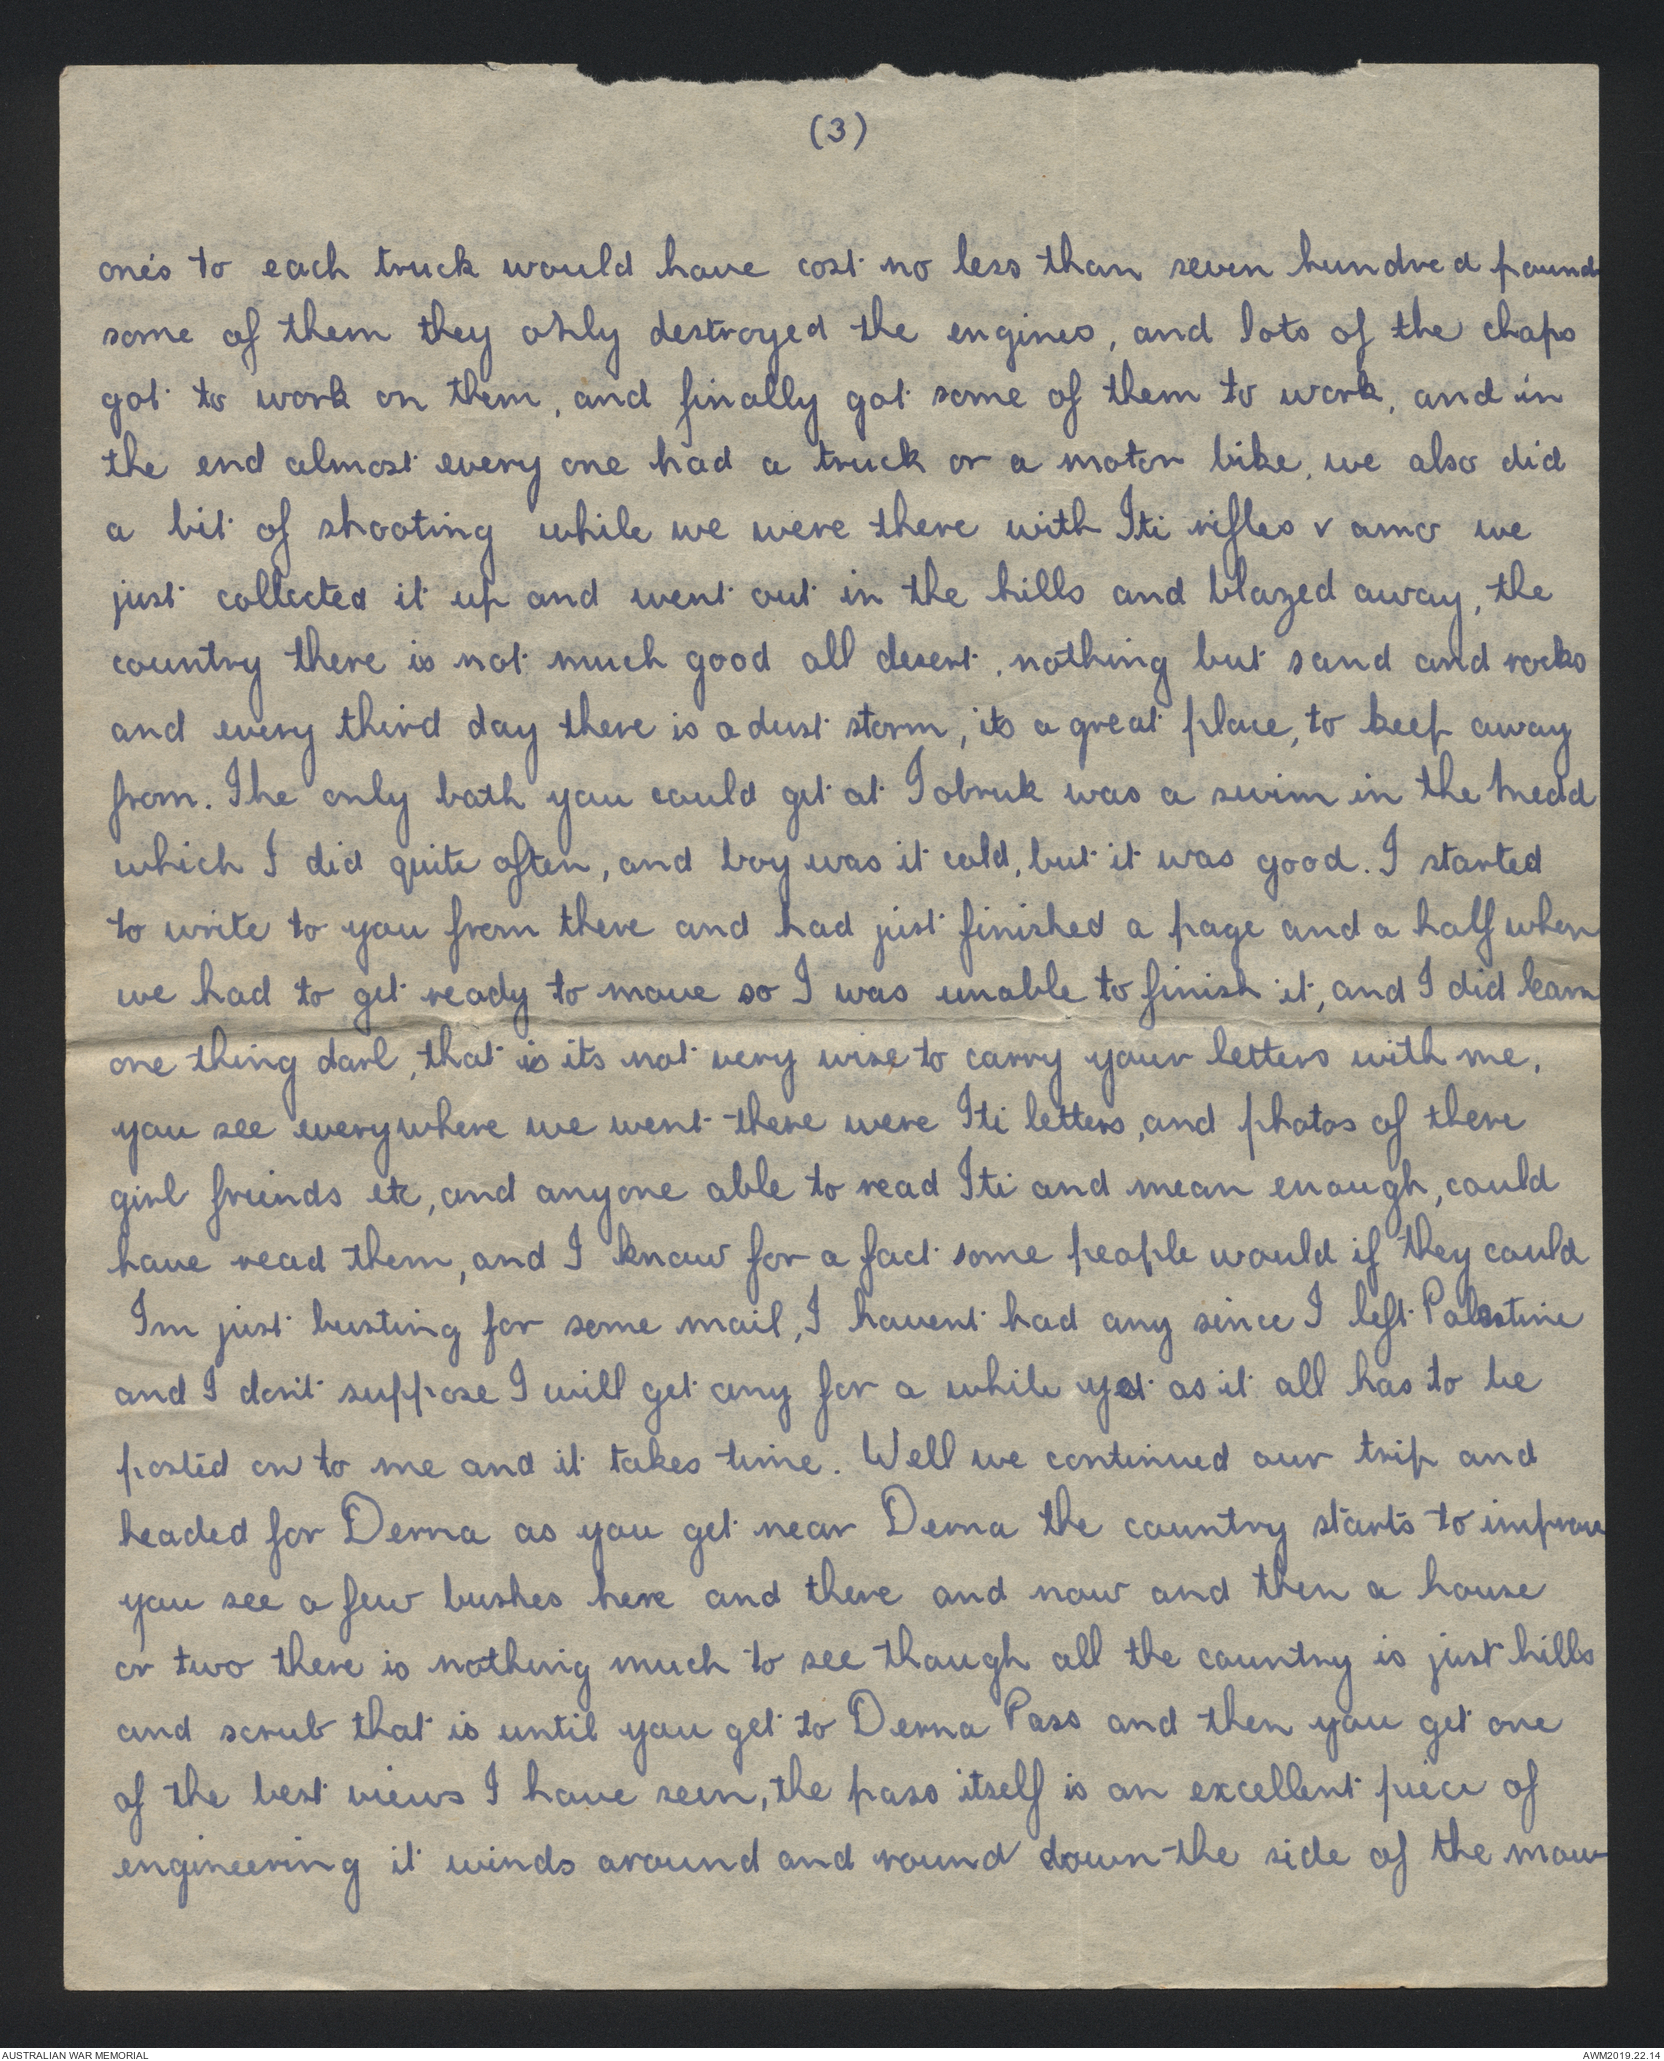 (3)
one's to each truck would have cost no less than seven hundred pounds
some of them they only destroyed the engines, and lots of the chaps
got to work on them, and finally got some of them to work, and in
the end almost every one had a truck or a motor bike, we also did
a bit of shooting while we were there with Iti rifles & amo we
just collected it up and went out in the hills and blazed away, the
country there is not much good all desert, nothing but sand and rocks
and every third day there is a dust storm, its a great place, to keep away
from. The only bath you could get at Tobruk was a swim in the Medd
which I did quite often, and boy was it cold, but it was good. I started
to write to you from there and had just finished a page and a half when
we had to get ready to move so I was unable to finish it, and I did learn
one thing darl, that is its not very wise to carry your letters with me,
you see everywhere we went there were Iti letters, and photos of there
girl friends etc, and anyone able to read Iti and mean enough, could
have read them, and I know for a fact some people would if they could
Im just busting for some mail, I havent had any since I left Palestine
and I don't suppose I will get any for a while yet as it all has to be
posted on to me and it takes time. Well we continued our trip and
headed for Derna as you get near Derna the country starts to improve
you see a few bushes here and there and now and then a house
or two there is nothing much to see though all the country is just hills
and scrub that is until you get to Derna Pass and then you get one
of the best views I have seen, the pass itself is an excellent piece of
engineering it winds around and round down the side of the moun
AUSTRALIAN WAR MEMORIAL
AWM2019.22.14